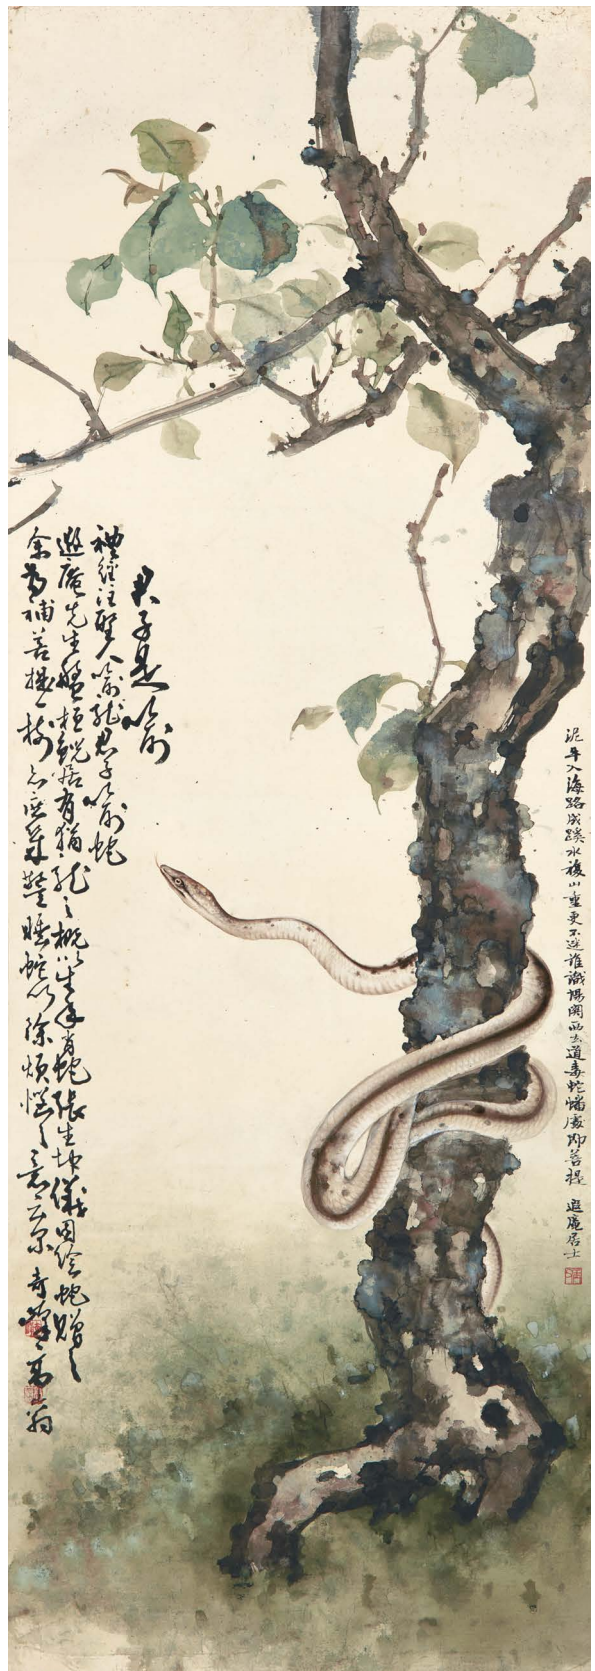 泥牛入海路成蹊水複山重更不迷誰識楊關西去道毒蛇蟠處即菩提 遐庵居士
君子是喻
禮經注聖人喻龍君子喻蛇
遐庵先生盤桓居有猶龍之概以生年肖蛇張生坤儀因繪蛇贈之
余為補菩提一樹亦庶幾驚睡蛇以除煩惱之意云尔 奇峯 高嵡